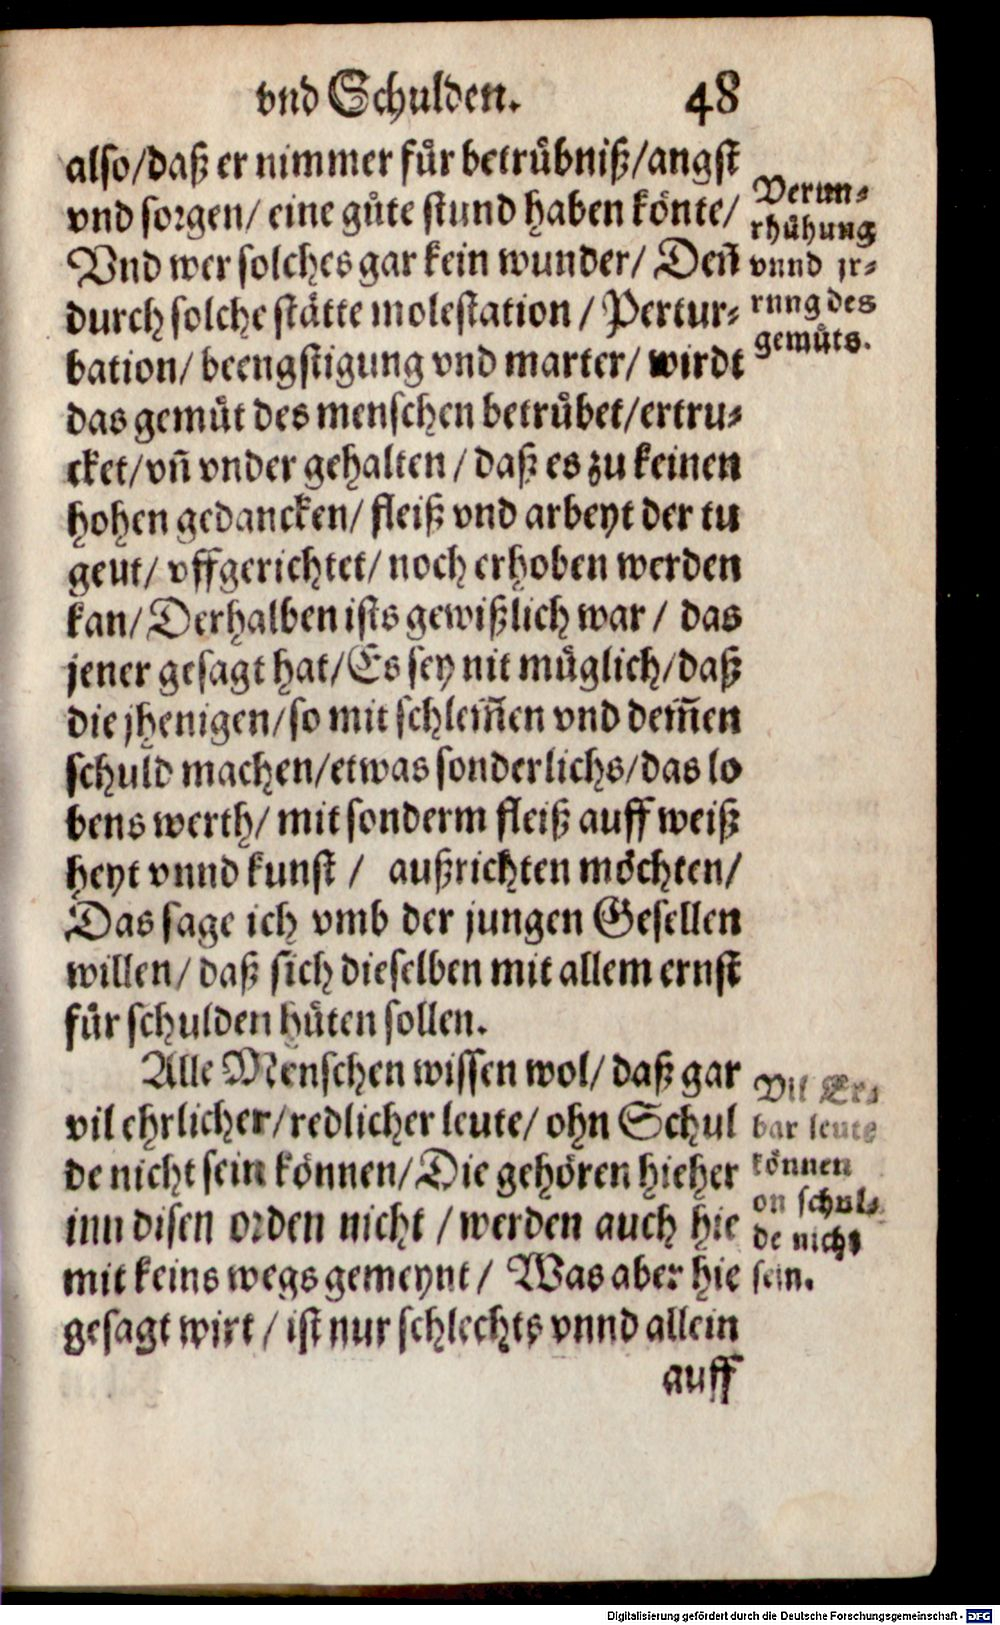 vnd Schulden. 48
also/daß er nimmer fuͤr betruͤbniß/angst
vnd sorgen/ eine guͤte stund haben koͤnte/
Vnd wer solches gar kein wunder/ Deñ
durch solche staͤtte molestation / Pertur⸗
bation/ beengstigung vnd marter/ wirdt
das gemuͤt des menschen betruͤbet/ertru⸗
cket/vñ vnder gehalten / daß es zu keinen
hohen gedancken/ fleiß vnd arbeyt der tu
geut/ vffgerichtet/ noch erhoben werden
kan/ Derhalben ists gewißlich war / das
jener gesagt hat/ Es sey nit muͤglich/daß
die jhenigen/so mit schlem̃en vnd dem̃en
schuld machen/etwas sonderlichs/das lo
bens werth/ mit sonderm fleiß auff weiß
heyt vnnd kunst / außrichten moͤchten/
Das sage ich vmb der jungen Gesellen
willen/ daß sich dieselben mit allem ernst
fuͤr schulden huͤten sollen.
Alle Menschen wissen wol/ daß gar
vil ehrlicher/redlicher leute/ ohn Schul
de nicht sein koͤnnen/ Die gehoͤren hieher
inn disen orden nicht / werden auch hie
mit keins wegs gemeynt / Was aber hie
gesagt wirt / ist nur schlechts vnnd allein
auff
Verun⸗
rhuͤhung
vnnd jr⸗
rung des
gemuͤts.
Vil Er⸗
bar leute
koͤnnen
on schul⸗
de nicht
sein.
Digitalisierung gefördert durch die Deutsche Forschungsgemeinschaft - DFG